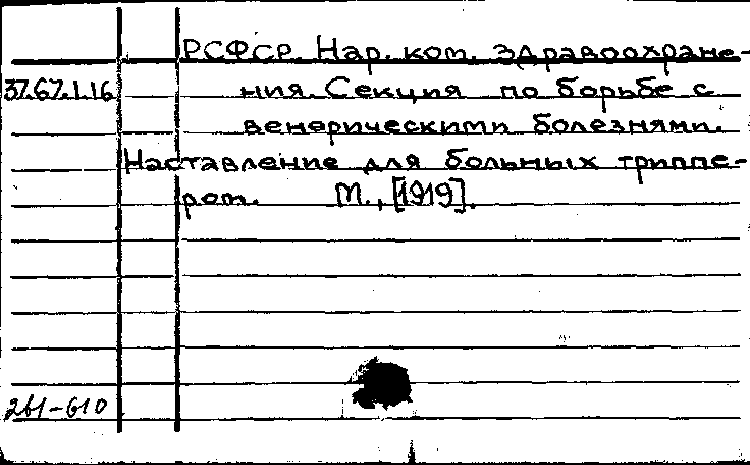 РСФСР. Нар. ком. здравоохране-
37.67.1.16 ния. Секция по борьбе с
венерическими болезнями.
Наставление для больных триппе-
ром. М., [1919].
261-610